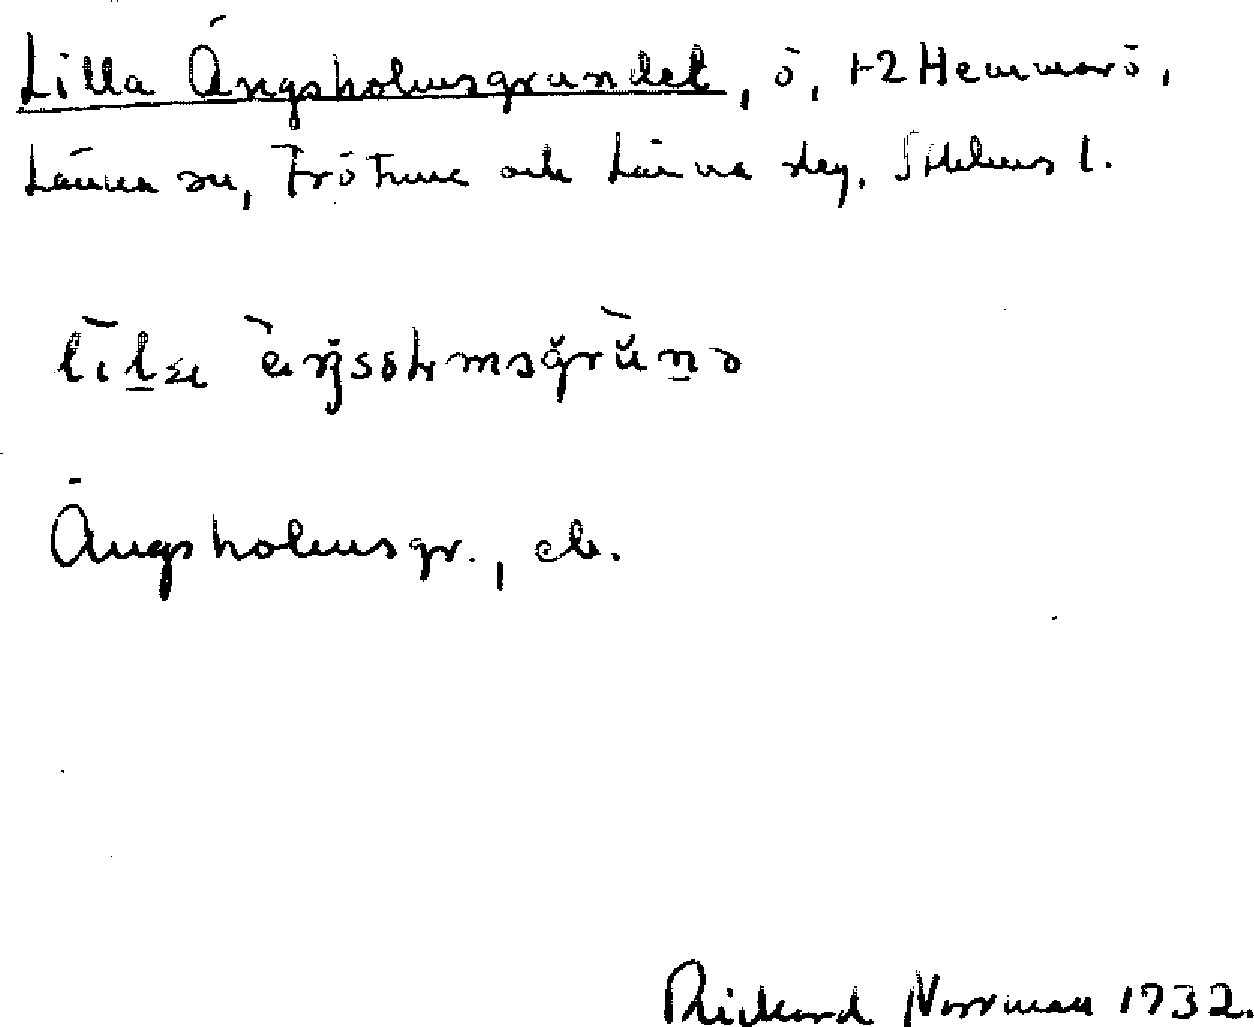 Lilla Ängsholmsgrundet, ö, 1-2 Hemmarö,
Länna sn, Frötuna och Länna skg, Sthlms l.
Ängsholmsgr., ek.
Rickard Norrman 1932.